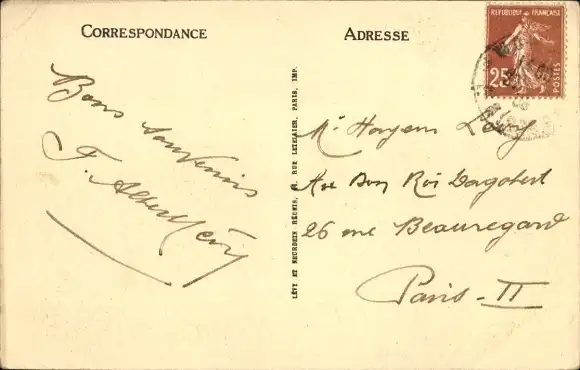 CORRESPONDANCE
ADRESSE
REPUBLIQUE FRANÇAISE
25
POSTES
Bons souvenirs
F. Albert Lévy
LÉVY ET NEURDEIN RÉUNIS, RUE LETELLIER, PARIS, IMP.
Mr Hayem Lévy
Au Bon Roi Dagobert
26 rue Beauregard
Paris - II